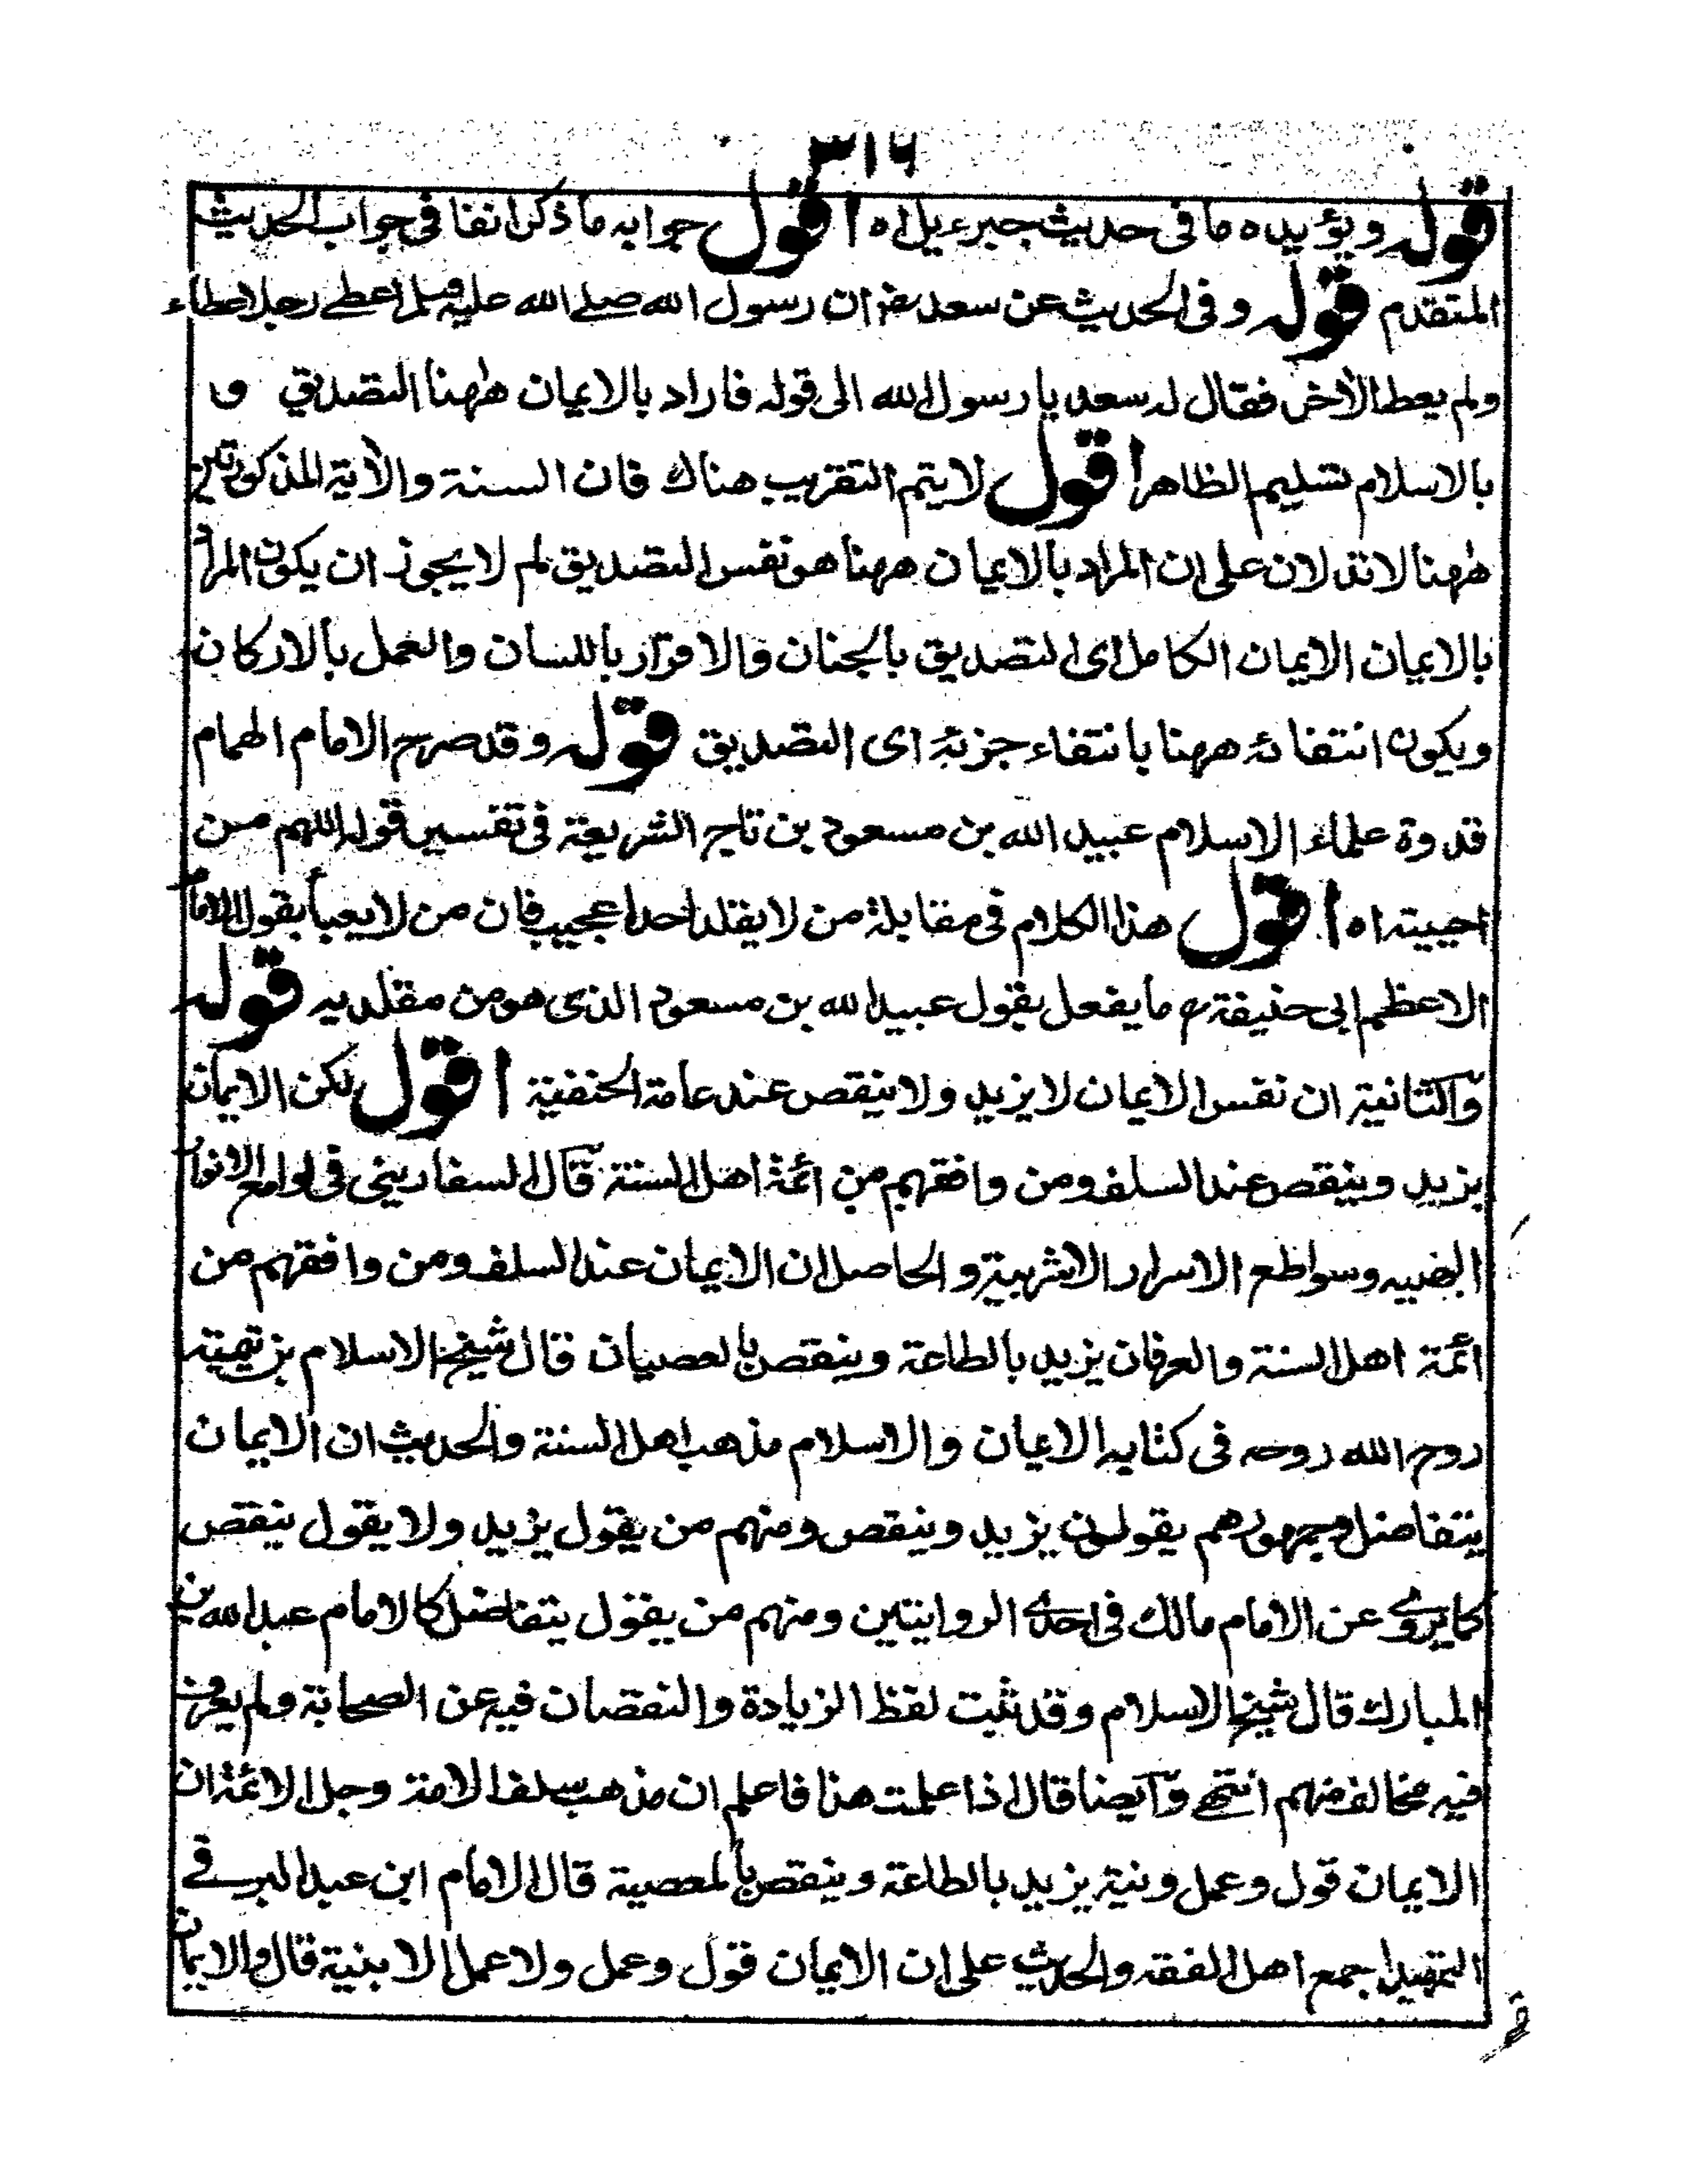 ٣١٦
قوله ويؤيده ما فى حديث جبرءيل اه اقول جوابه ما ذكر انفا فى جواب الحديث
المتقدم قوله وفى الحديث عن سعد رضى ان رسول الله صلے الله عليه وسلم اعطے رجلا عطاء
ولم يعط الأخر فقال له سعد يا رسول الله الى قوله فاراد بالايمان ههنا التصديق و
بالاسلام تسليم الظاهر اقول لا يتم التقريب هناك فان السنة والأية المذكورتين
ههنا لا تدلان على ان المراد بالايمان ههنا هو نفس التصديق لم لا يجوز ان يكون المراد
بالايمان الايمان الكامل اى التصديق بالجنان والاقرار باللسان والعمل بالاركان
ويكون انتفائه ههنا بانتفاء جزئه اى التصديق قوله وقد صرح الامام الهمام
قدوة علماء الاسلام عبيد الله بن مسعود بن تاج الشريعة فى تفسير قوله اللهم من
احييته اه اقول هذا الكلام فى مقابلة من لا يقلد احدا عجيب فان من لا يعبأ بقول الامام
الاعظم ابى حنيفة رح ما يفعل بقول عبيد الله بن مسعود الذى هو من مقلديه قوله
والثانية ان نفس الايمان لا يزيد ولا ينقص عند عامة الحنفية اقول لكن الايمان
يزيد وينقص عند السلف ومن وافقهم من ائمة اهل السنة قال السفارينى فى لوامع الانوار
البهيه وسواطع الاسرار الاثرية والحاصل ان الايمان عند السلف ومن وافقهم من
ائمة اهل السنة والعرفان يزيد بالطاعة وينقص بالعصيان قال شيخ الاسلام بن تيمية
روح الله روحه فى كتابه الايمان والاسلام مذهب اهل السنة والحديث ان الايمان
يتفاضل وجمهورهم يقولون يزيد وينقص ومنهم من يقول يزيد ولا يقول ينقص
كما يروے عن الامام مالك فى احدے الروايتين ومنهم من يقول يتفاضل كالامام عبد الله بن
المبارك قال شيخ الاسلام وقد ثبت لفظ الزيادة والنقصان فيه عن الصحابة ولم يعرف
فيه مخالف منهم انتهے وايضا قال اذا علمت هذا فاعلم ان مذهب سلف الامة وجل الائمة ان
الايمان قول وعمل ونية يزيد بالطاعة وينقص بالمعصية قال الامام ابن عبد البر فے
التمهيد اجمع اهل الفقه والحديث على ان الايمان قول وعمل ولا عمل الا بنية قال والايمان